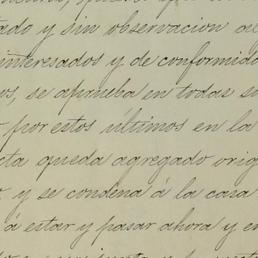 tado y sin observacion al
interesados y de conformida
os, se aprueba en todas su
por estos últimos en la
cta queda agregado orig
y se condena á la casa
á estar y pasar ahora y en